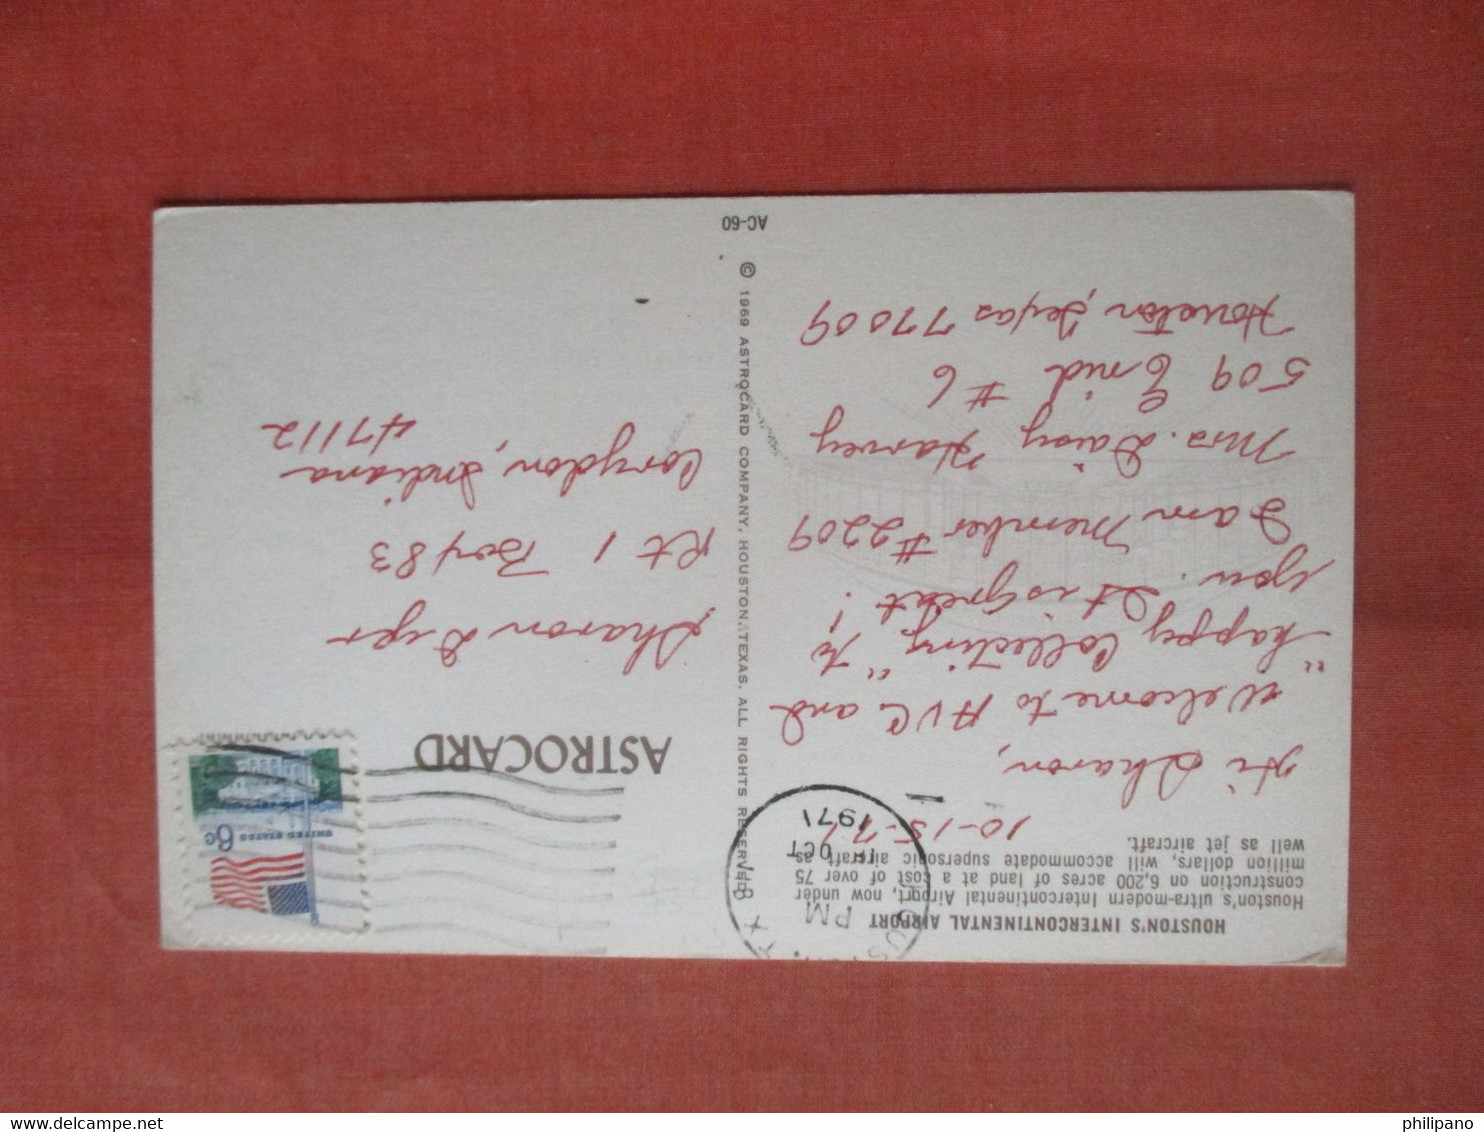 HOUSTON'S INTERCONTINENTAL AIRPORT
Houston's ultra-modern Intercontinental Airport, now under
construction on 6,200 acres of land at a cost of over 75
million dollars, will accommodate supersonic aircraft as
well as jet aircraft.
10-15-71
Hi Sharon,
Welcome to AVC and
"happy Collecting" to
you. It is great!
I am member #2209
Mrs. Daisy Harvey
509 Enid #6
Houston, Texas 77009
PM
OCT
1971
© 1969 ASTROCARD COMPANY, HOUSTON, TEXAS. ALL RIGHTS RESERVED
AC-60
UNITED STATES
6c
ASTROCARD
Sharon Dyer
Rt 1 Box 83
Corydon, Indiana
47112
www.delcampe.net
philipano